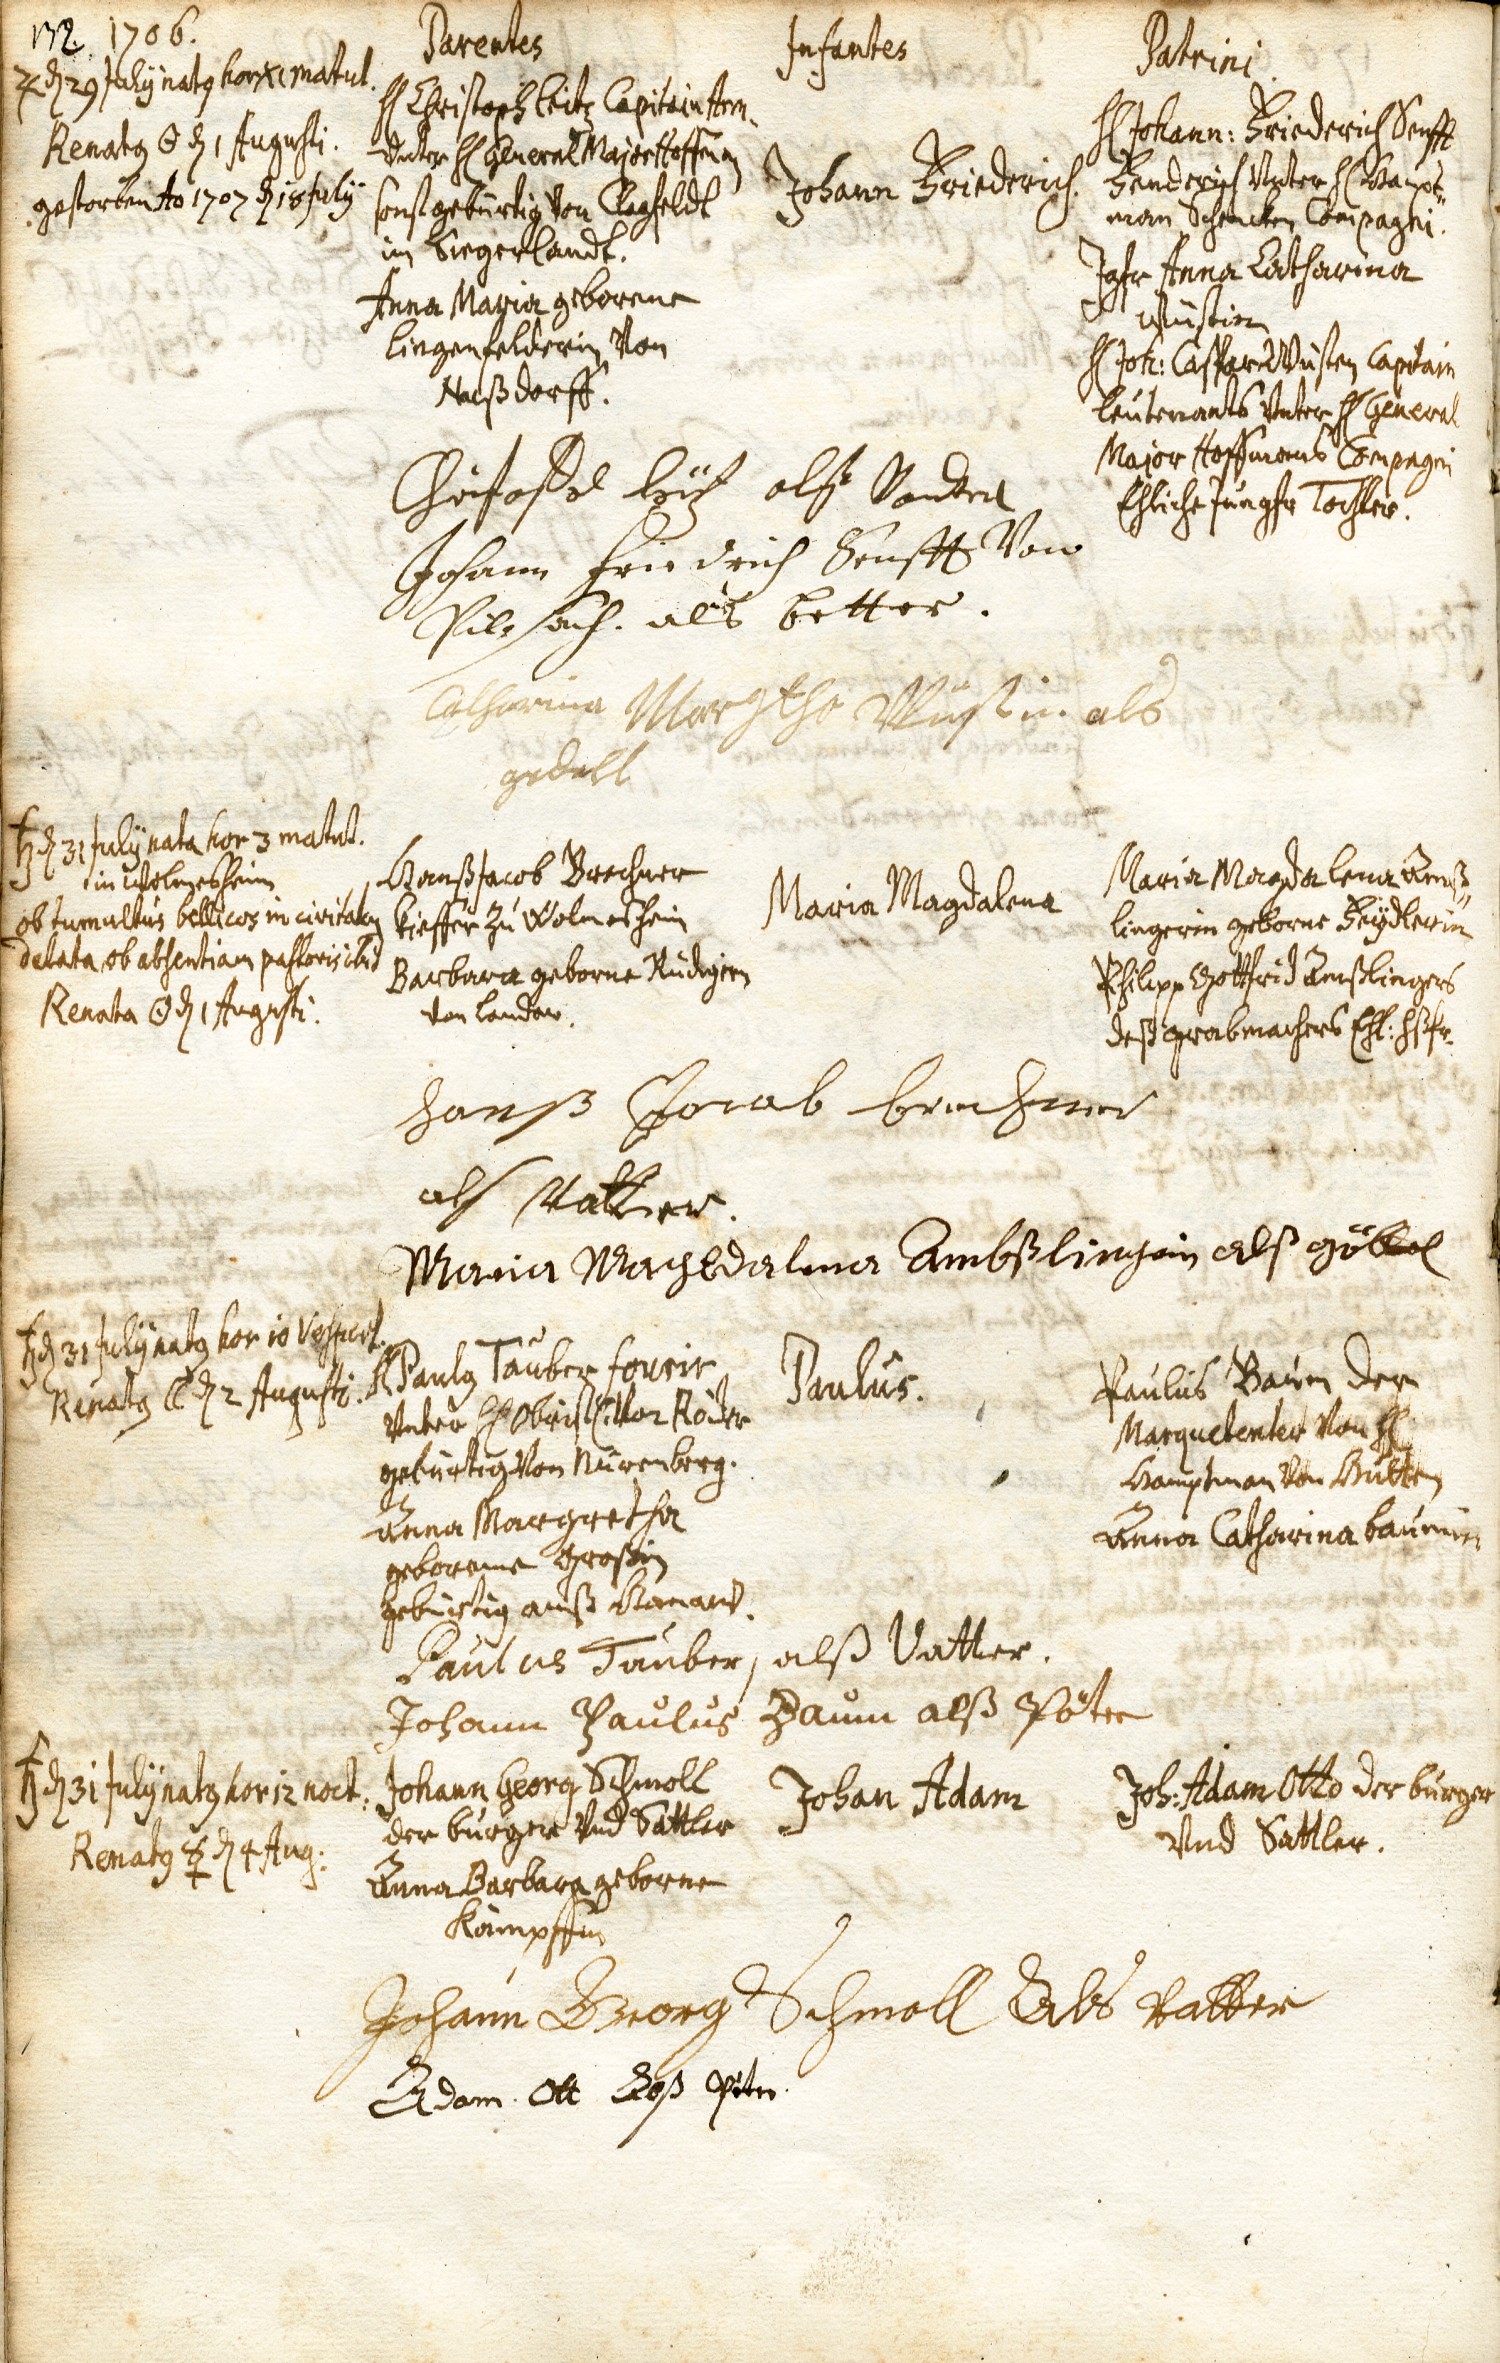 172. 1706.
Parentes
Infantes
Patrini.
♃ d 29 Julÿ natg hor XI matut.
Renatg ☉ d 1 Augusti.
gestorben Ao 1707 d 18 July
H Christoph Leitz Capitain
Unter H General Major Hoffman
sonst gebürtig Von Clagfeldt
im Siegerlandt.
Anna Maria geborene
Lingenfelderin Von
Nußdorff.
Johann Friederich.
H Johann: Friederich Senfft
Fenderich Unter H Haupt-
man Schencken Compagni.
Jgfr Anna Catharina
Wüstin
H Joh: Caspar Wüsten Capitain
Leutenants Unter H General
Major Hoffmans Compagni
Ehliche Jungfr Tochter.
Christoffel Leitz alß Vatter
Johann Friedrich Senfft Von
Pilsach. als Petter.
Catharina Margtha Wüstin als
gedell
♄ d 31 Julÿ nata hor 3 matut.
in Wolmesheim
ob tumultus bellicos in civitatem
delata ob absentiam pastoris ibid
Renata ☉ d 1 Augusti.
Hanß Jacob Brechner
Kieffer zu Wolmeshein
Barbara geborne Rüdigern
von Landaw.
Maria Magdalena
Maria Magdalena Amß-
lingerin geborne Feÿdlerin
Philipp Gottfrid Amßlingers
deß grabmachers Ehl: hßfr.
hanß Jocab brechner
alß Vatter.
Maria Maghdalena Ambßlingrin alß göttel
♄ d 31 Julÿ natg hor 10 Vespert.
Renatg ☾ d 2 Augusti.
H Paulg Tauber fourir
Unter H Obrist Röder
gebürtig Von Nürenberg.
Anna Margretha
geborene Großin
gebürtig auß Hanaw.
Paulus.
Paulus Baum der
Marquetenter Von H
Hauptman Von Hutten
Anna Catharina Baumin
Paulus Tauber, alß Vatter.
Johann Paulus Baum alß Pöter
♄ d 31 Julÿ natg hor 12 noct.
Renatg ☿ d 4 Aug:
Johann Georg Schmoll
der burger Und Sattler
Anna Barbara geborne
Kämpffin
Johan Adam
Joh: Adam Otto der burger
Und Sattler.
Johann Georg Schmoll Als Vatter
Adam. Ott Alß Peter.